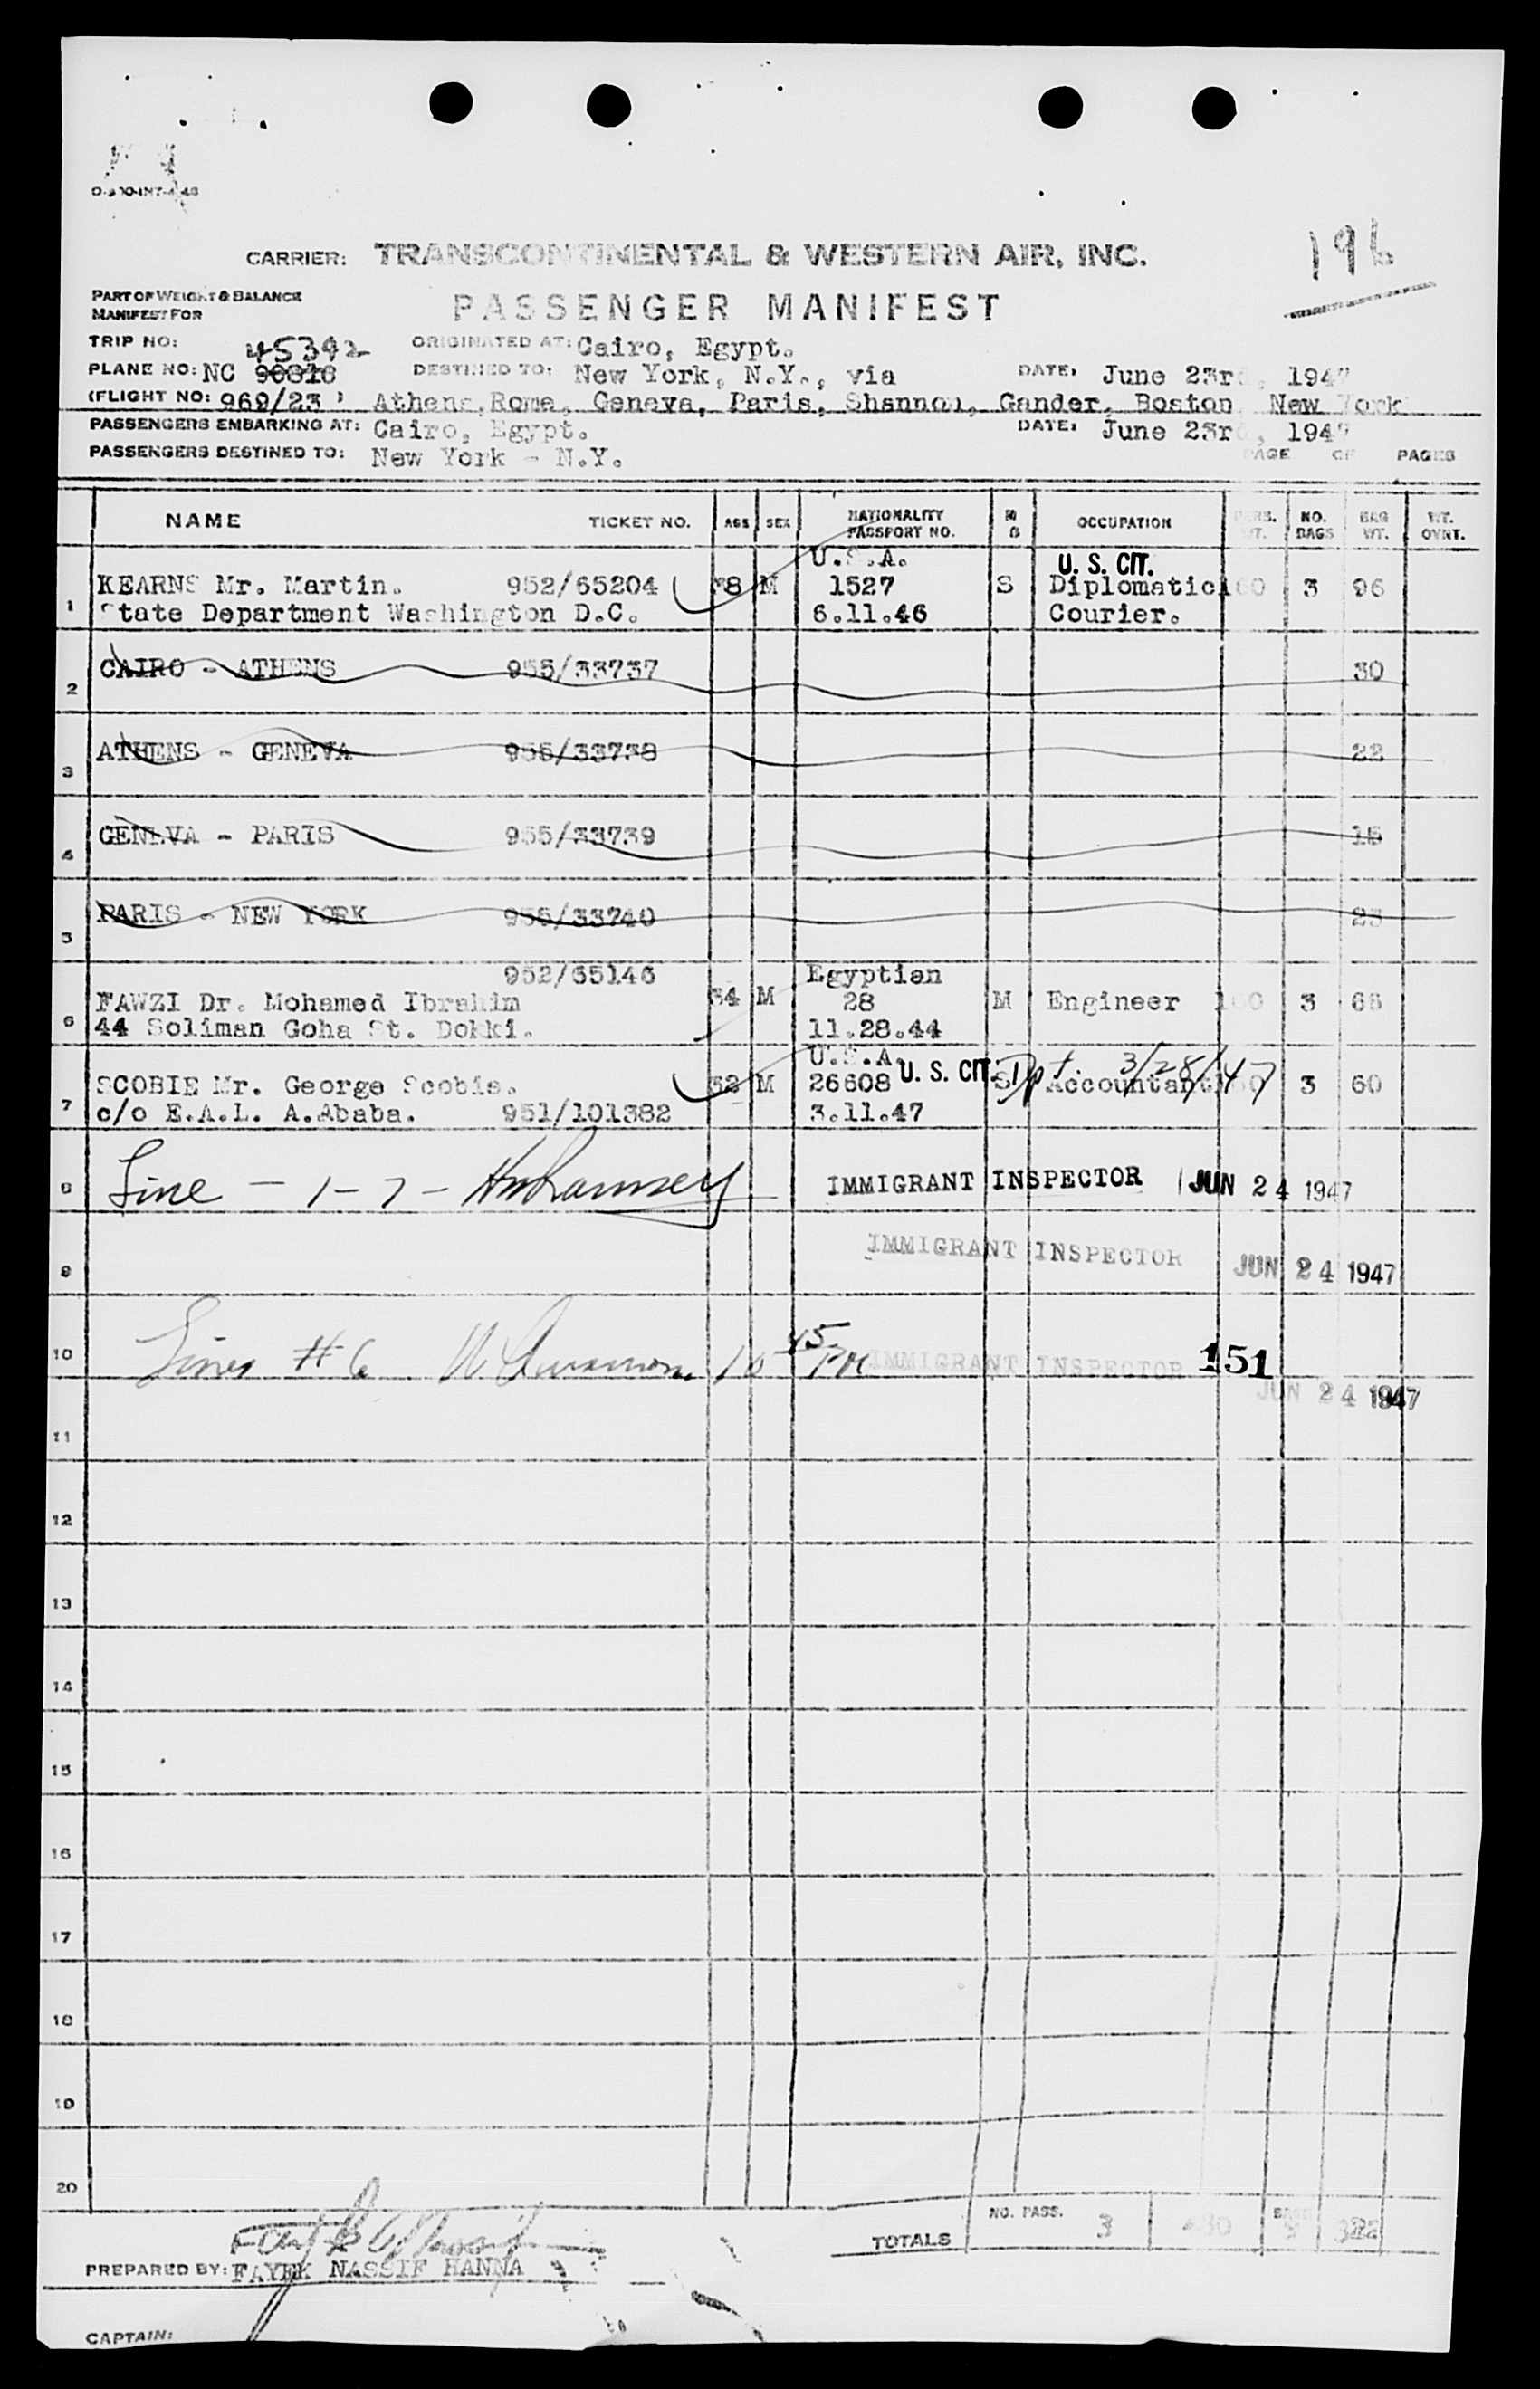 196
CARRIER: TRANSCONTINENTAL & WESTERN AIR, INC.
PART OF WEIGHT & BALANCE
MANIFEST FOR
PASSENGER MANIFEST
TRIP NO: 45392 ORIGINATED AT: Cairo, Egypt.
PLANE NO: NC 90816 DESTINED TO: New York, N.Y., via DATE: June 23rd, 1947
(FLIGHT NO: 969/23 ) Athens, Rome, Geneva, Paris, Shannon, Gander, Boston, New York
PASSENGERS EMBARKING AT: Cairo, Egypt. DATE: June 23rd, 1947
PASSENGERS DESTINED TO: New York - N.Y. PAGE OF PAGES
NAME TICKET NO. AGE SEX NATIONALITY PASSPORT NO. M S OCCUPATION PERS. WT. NO. BAGS BAG WT. WT. OVNT.
U.S.A. U. S. CIT.
KEARNS Mr. Martin. 952/65204 38 M 1527 S Diplomatic 160 3 96
1 State Department Washington D.C. 6.11.46 Courier.
2 CAIRO - ATHENS 955/33737 30
3 ATHENS - GENEVA 955/33738 22
4 GENEVA - PARIS 955/33739 15
5 PARIS - NEW YORK 955/33740 23
952/65146 Egyptian
FAWZI Dr. Mohamed Ibrahim 34 M 28 M Engineer 160 3 65
6 44 Soliman Goha St. Dokki. 11.28.44
U.S.A. U. S. CIT. Dpt. 3/28/47
SCOBIE Mr. George Scobie. 32 M 26608 S Accountant 3 60
7 c/o E.A.L. A.Ababa. 951/101382 3.11.47
8 Line - 1 - 7 - IMMIGRANT INSPECTOR JUN 24 1947
9 IMMIGRANT INSPECTOR JUN 24 1947
10 Lines # 6 10 45 PM IMMIGRANT INSPECTOR 151
JUN 24 1947
11
12
13
14
15
16
17
18
19
20
TOTALS NO. PASS. 3 9
PREPARED BY: FAYEK NASSIF HANNA
CAPTAIN: